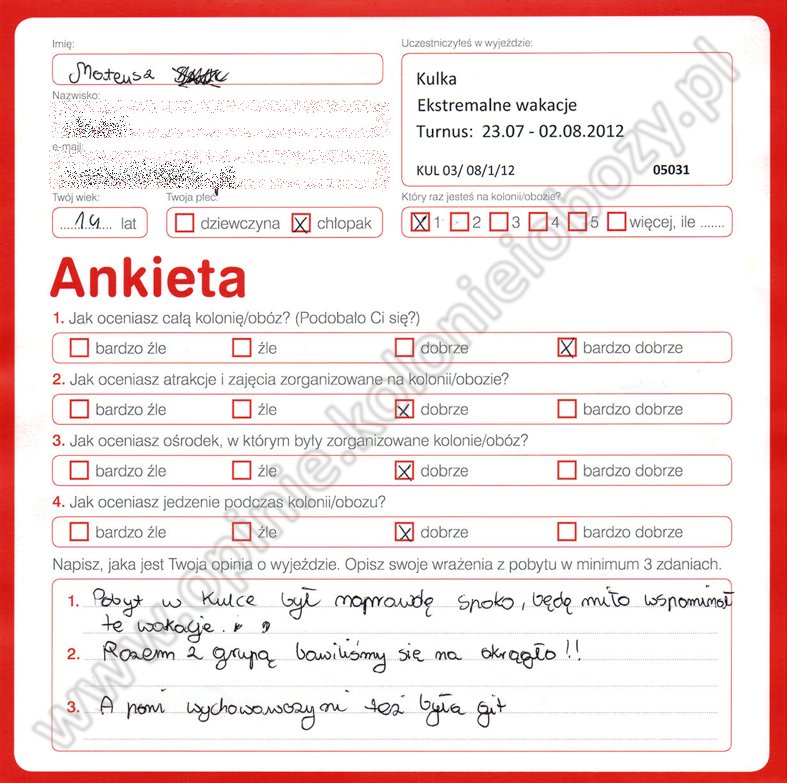 Imię:
Mateusz
Nazwisko:
e-mail:
Twój wiek:
14 lat
Twoja płeć:
dziewczyna X chłopak
Uczestniczyłeś w wyjeździe:
Kulka
Ekstremalne wakacje
Turnus: 23.07 - 02.08.2012
KUL 03/ 08/1/12 05031
Który raz jesteś na kolonii/obozie?
X 1 2 3 4 5 więcej, ile .......
Ankieta
1. Jak oceniasz całą kolonię/obóz? (Podobało Ci się?)
bardzo źle źle dobrze X bardzo dobrze
2. Jak oceniasz atrakcje i zajęcia zorganizowane na kolonii/obozie?
bardzo źle źle X dobrze bardzo dobrze
3. Jak oceniasz ośrodek, w którym były zorganizowane kolonie/obóz?
bardzo źle źle X dobrze bardzo dobrze
4. Jak oceniasz jedzenie podczas kolonii/obozu?
bardzo źle źle X dobrze bardzo dobrze
Napisz, jaka jest Twoja opinia o wyjeździe. Opisz swoje wrażenia z pobytu w minimum 3 zdaniach.
1. Pobyt w Kulce był naprawdę spoko, będę miło wspominał
te wakacje.
2. Razem z grupą bawiliśmy się na okrągło!!
3. A pani wychowawczyni też była git
www.opinie.kolonieiobozy.pl